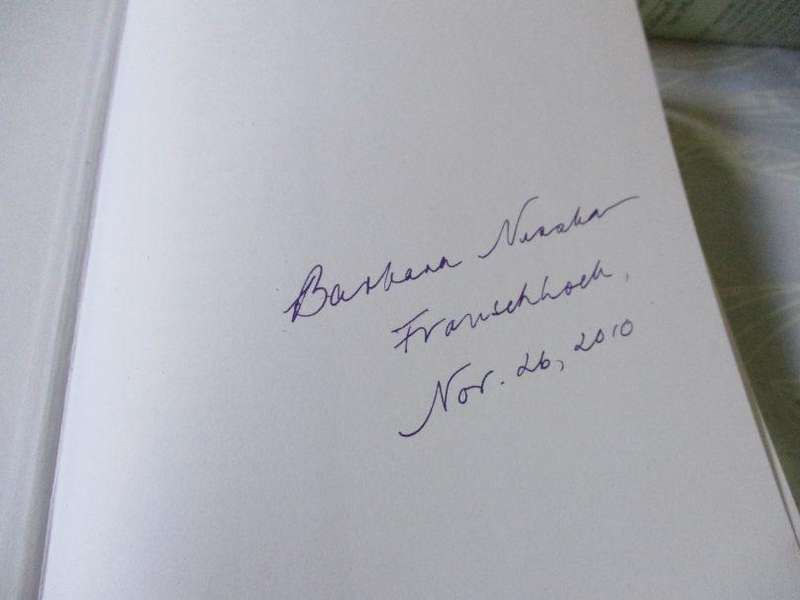 Barbara
Franschhoek,
Nov. 26, 2010